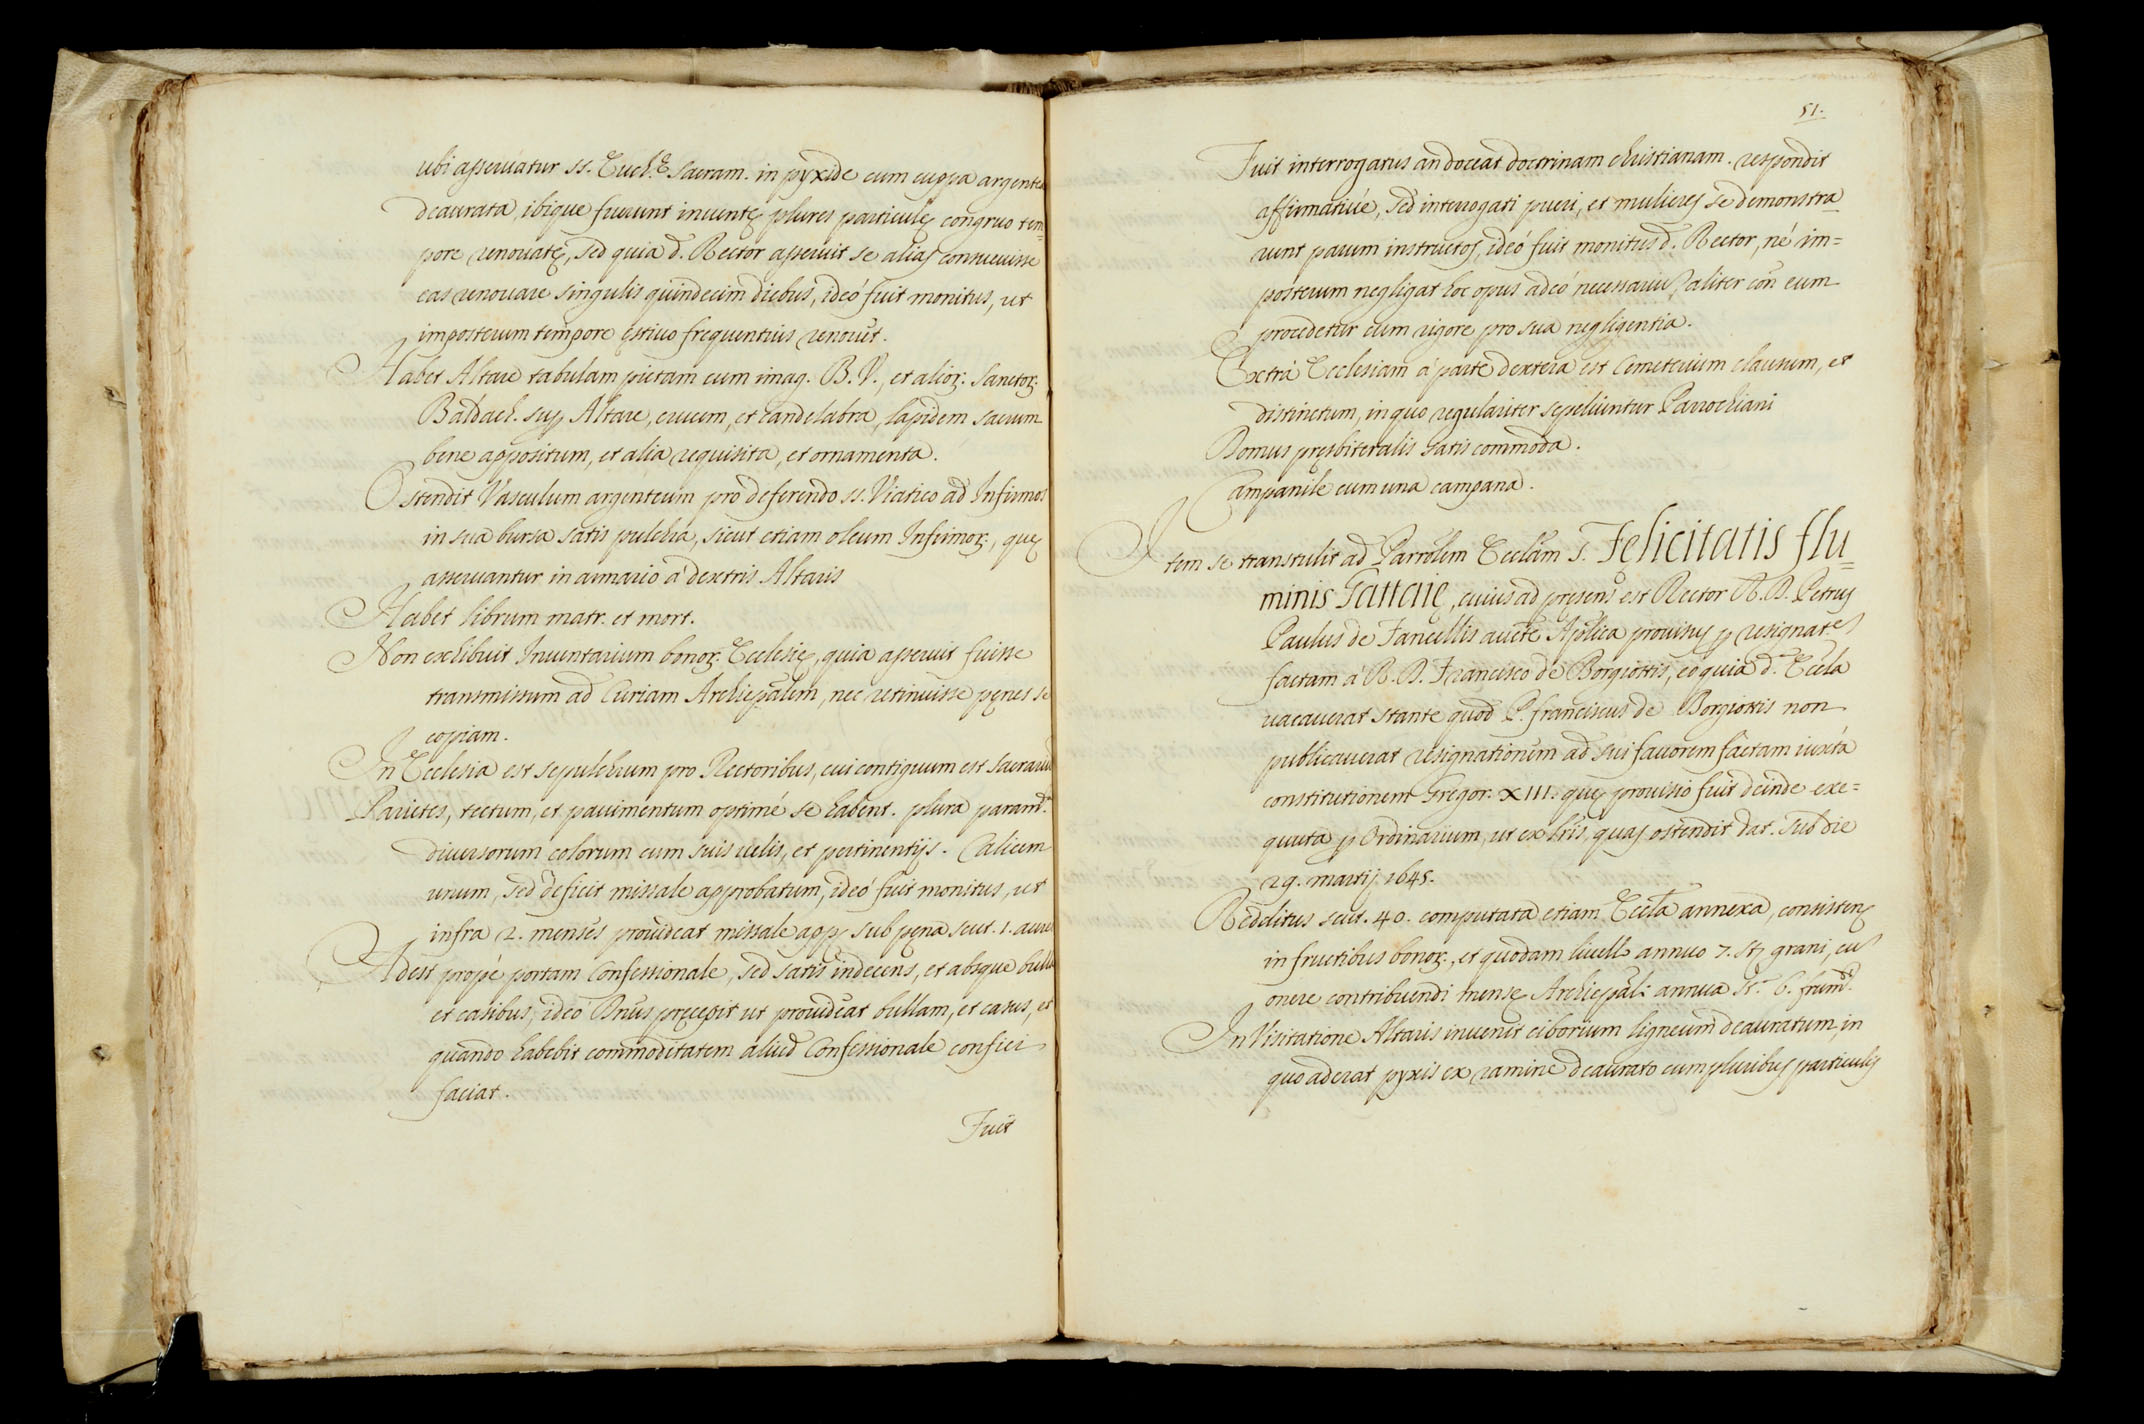 ubi asseruatur ss. Euch.ę Sacram. in pyxide cum cuppa argentea
deaurata, ibique fuerunt inuentę plures particulę congruo tem=
pore renouatę, sed quia d. Rector asseruit se alias consueuisse
eas renouare singulis quindecim diebus, ideó fuit monitus, ut
imposterum tempore ęstiuo frequentius renouet.
Habet Altare tabulam pictam cum imag. B. V., et alior: Sanctor:
Baldach. sup Altare, crucem, et candelabra, lapidem sacrum
bene appositum, et alia requisita, et ornamenta.
Ostendit Vasculum argenteum pro deferendo ss. Viatico ad Infirmos
in sua bursa satis pulchra, sicut etiam oleum Infirmor:, quę
asseruantur in armario á dextris Altaris
Habet librum matr. et mort.
Non exhibuit Inuentarium bonor: Ecclesię, quia asseruit fuisse
transmissum ad Curiam Archiepãlem, nec retinuisse pęnes se
copiam.
In Ecclesia est sepulchrum pro Rectoribus, cui contiguum est sacrariũ
Parietes, tectum, et pauimentum optimé se habent. plura param.ta
diuersorum colorum cum suis uelis, et pertinentijs. Calicem
unum, sed deficit missale approbatum, ideó fuit monitus, ut
infra 2. menses prouideat missale app. sub pęna scut. 1. auri
Adest propé portam Confessionale, sed satis indecens, et absque bulla
et casibus, ideó Dñus pręcepit ut prouideat bullam, et casus, et
quando habebit commoditatem aliud Confessionale confici
faciat.
Fuit
51.
Fuit interrogatus an doceat doctrinam christianam. respondit
affirmatiué, sed interrogati pueri, et mulieres se demonstra=
runt parum instructos, ideó fuit monitus d. Rector, né im=
posterum negligat hoc opus adeó necessariũ, aliter coñ eum
procedetur cum rigore pro sua negligentia.
Extrá Ecclesiam á parte dextera est Cemeterium clausum, et
distinctum, in quo regulariter sepeliuntur Parrochiani
Domus pręsbiteralis satis commoda.
Campanile cum una campana.
Item se transtulit ad Parrõlem Ecclãm S. Felicitatis flu=
minis Gattaię, cuius ad pręsens est Rector R. D. Petrus
Paulus de Fancellis aucte Aplica prouisus p resignat.es
factam á R. D. Francisco de Borgiottis, eo quia d.a Eccla
uacauerat stante quod P. franciscus de Borgiottis non
publicauerat resignationem ad sui fauorem factam iuxta
constitutionem Gregor. XIII. quę prouisio fuit deinde exe=
quuta p Ordinarium, ut ex lris, quas ostendit dat. sub die
29. martij 1645.
Redditus scut. 40. computata etiam Eccla annexa, consistens
in fructibus bonor:, et quodam liuello annuo 7. st. grani, cũ
onere contribuendi mensę Archiepãli annua st. 6. frum.ti
In Visitatione Altaris inuenit ciborium ligneum deauratum, in
quo aderat pyxis ex ramine deaurato cum pluribus particulis